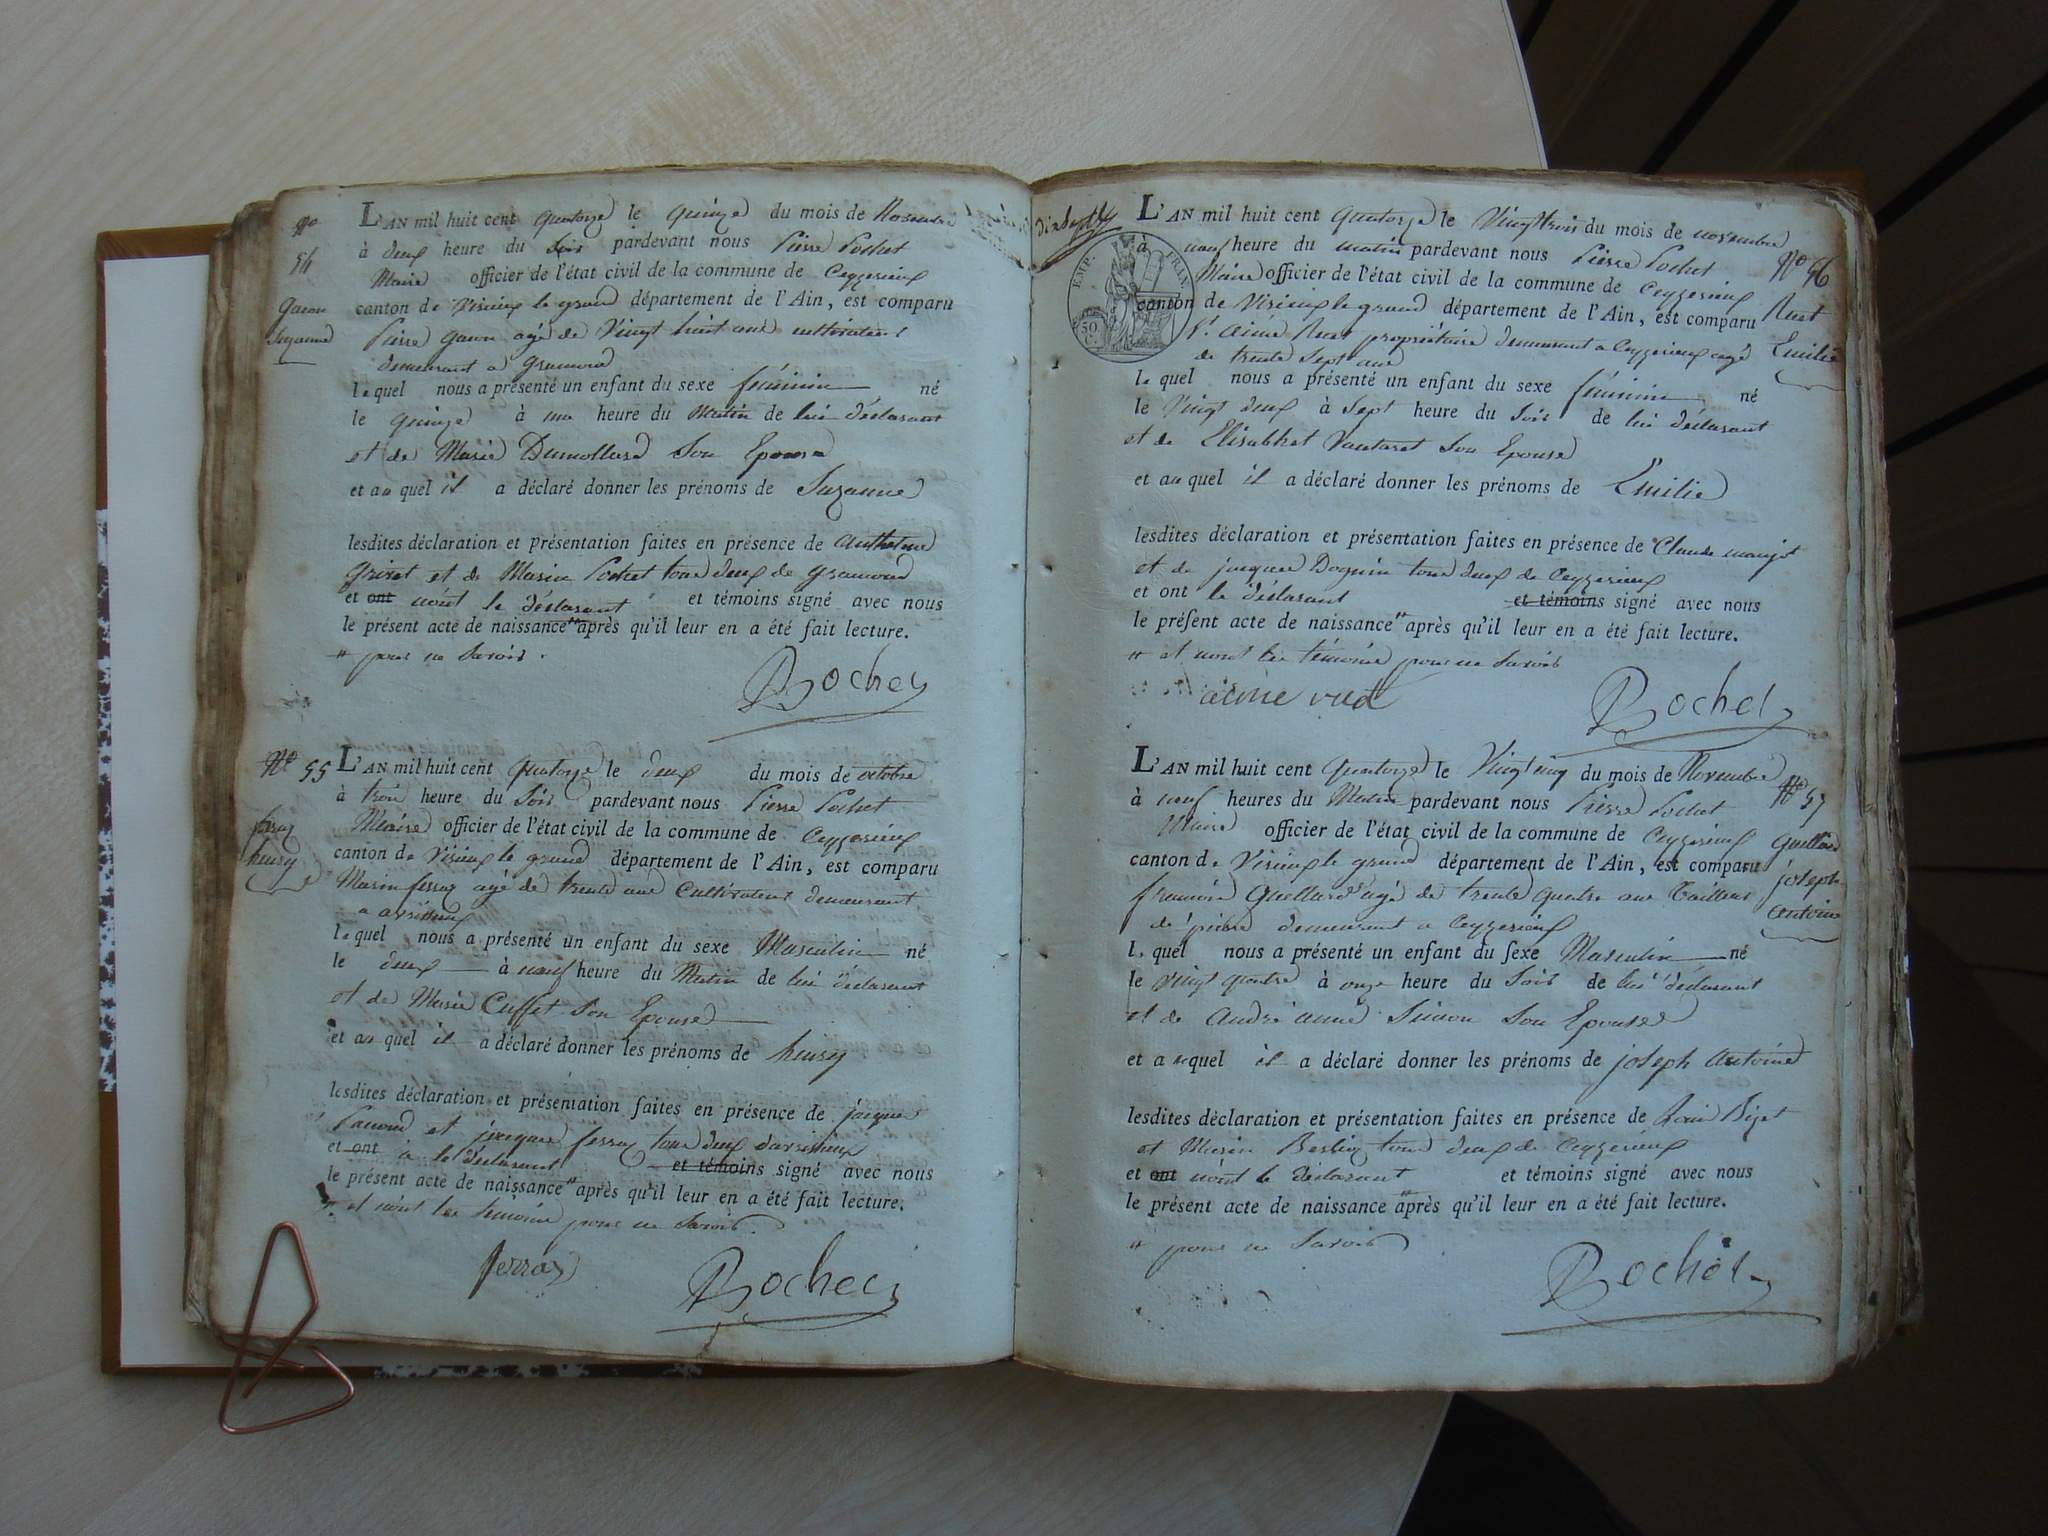 N.o
54
gavon
Suzanne
L'AN mil huit cent quatorze le quinze du mois de Novembre
à deux heure du soir pardevant nous Pierre Pochet
Maire officier de l'état civil de la commune de Ceyzerieu
canton de Virieu le grand département de l'Ain, est comparu
Pierre gavon agé de Vingt huit ans cultivateur
demeurant a gramond
lequel nous a présenté un enfant du sexe féminin né
le quinze à une heure du matin de lui déclarant
et de Marie Dumollard Son Epouse
et au quel il a déclaré donner les prénoms de Suzanne
lesdites déclaration et présentation faites en présence de anthelme
grivet et de Marin Pochet tous deux de gramond
et ont n'ont le déclarant et témoins signé avec nous
le présent acte de naissance " après qu'il leur en a été fait lecture.
" pour ne Savoir.
Pochet
N.o 55
ferraz
henry
L'AN mil huit cent quatorze le deux du mois de octobre
à trois heure du Soir pardevant nous Pierre Pochet
Maire officier de l'état civil de la commune de Ceyzerieu
canton de Virieu le grand département de l'Ain, est comparu
Marin ferraz agé de trente ans Cultivateur demeurant
a avrissieu
lequel nous a présenté un enfant du sexe Masculin né
le deux à neuf heure du Matin de lui déclarant
et de Marie Cuffet Son Epouse
et au quel il a déclaré donner les prénoms de henry
lesdites déclaration et présentation faites en présence de jacque
et jacques ferraz tous deux d'avrissieu
et ont à le déclarant et témoins signé avec nous
le présent acte de naissance " après qu'il leur en a été fait lecture.
" et n'ont les témoins pour ne Savoir
ferraz
Pochet
dix Sept
EMP. FRAN.
50 C.
L'AN mil huit cent quatorze le Vingt trois du mois de novembre
à neuf heure du matin pardevant nous Pierre Pochet
Maire officier de l'état civil de la commune de Ceyzerieu
canton de Virieu le grand département de l'Ain, est comparu
Sr aimé Ruet propriétaire demeurant a Ceyzerieu agé
de trente Sept ans
lequel nous a présenté un enfant du sexe féminin né
le Vingt deux à Sept heure du Soir de lui déclarant
et de Elisabhet Vautaret Son Epouse
et au quel il a déclaré donner les prénoms de Emilie
lesdites déclaration et présentation faites en présence de Claude maujot
et de jacques Doguin tous deux de Ceyzerieu
et ont le déclarant et témoins signé avec nous
le présent acte de naissance " après qu'il leur en a été fait lecture.
" et n'ont les témoins pour ne Savoir
aime rud
Pochet
N.o 56
Ruet
Emilie
L'AN mil huit cent quatorze le Vingt cinq du mois de Novembre
à neuf heures du Matin pardevant nous Pierre Pochet
Maire officier de l'état civil de la commune de Ceyzerieu
canton de Virieu le grand département de l'Ain, est comparu
françois Quellard agé de trente quatre ans Tailleur
de pierre demeurant a Ceyzerieu
lequel nous a présenté un enfant du sexe Masculin né
le vingt quatre à onze heure du Soir de lui déclarant
et de andré anne Simon Son Epouse
et auquel il a déclaré donner les prénoms de joseph antoine
lesdites déclaration et présentation faites en présence de
et Marin tous deux de Ceyzerieu
et ont n'ont le déclarant et témoins signé avec nous
le présent acte de naissance " après qu'il leur en a été fait lecture.
" pour ne Savoir
Pochet
N.o 57
Quellard
joseph
antoine